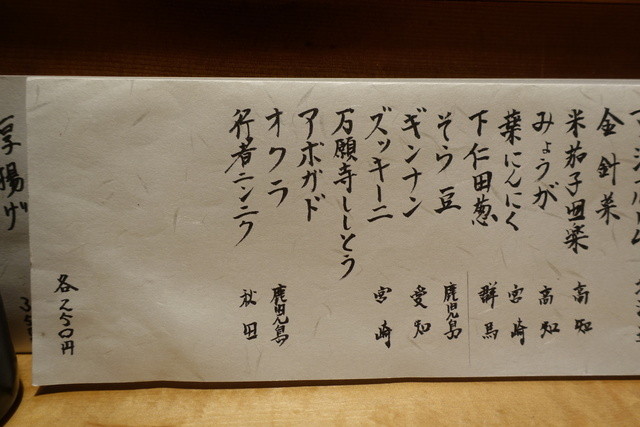 金針菜
米茄子田楽 高知
みょうが 高知
葉にんにく 宮崎
下仁田葱 群馬
そら豆 鹿児島
ギンナン 愛知
ズッキーニ 宮崎
万願寺ししとう
アボガド
オクラ 鹿児島
行者ニンニク 秋田
各二五〇円
厚揚げ